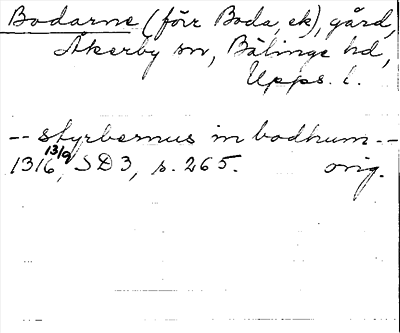 Bodarne (förr Boda, ek), gård,
Åkerby sn, Bälinge hd,
Upps. l.
-- styrbernus in bodhum --
1316 13/9, SD 3, s. 265. orig.